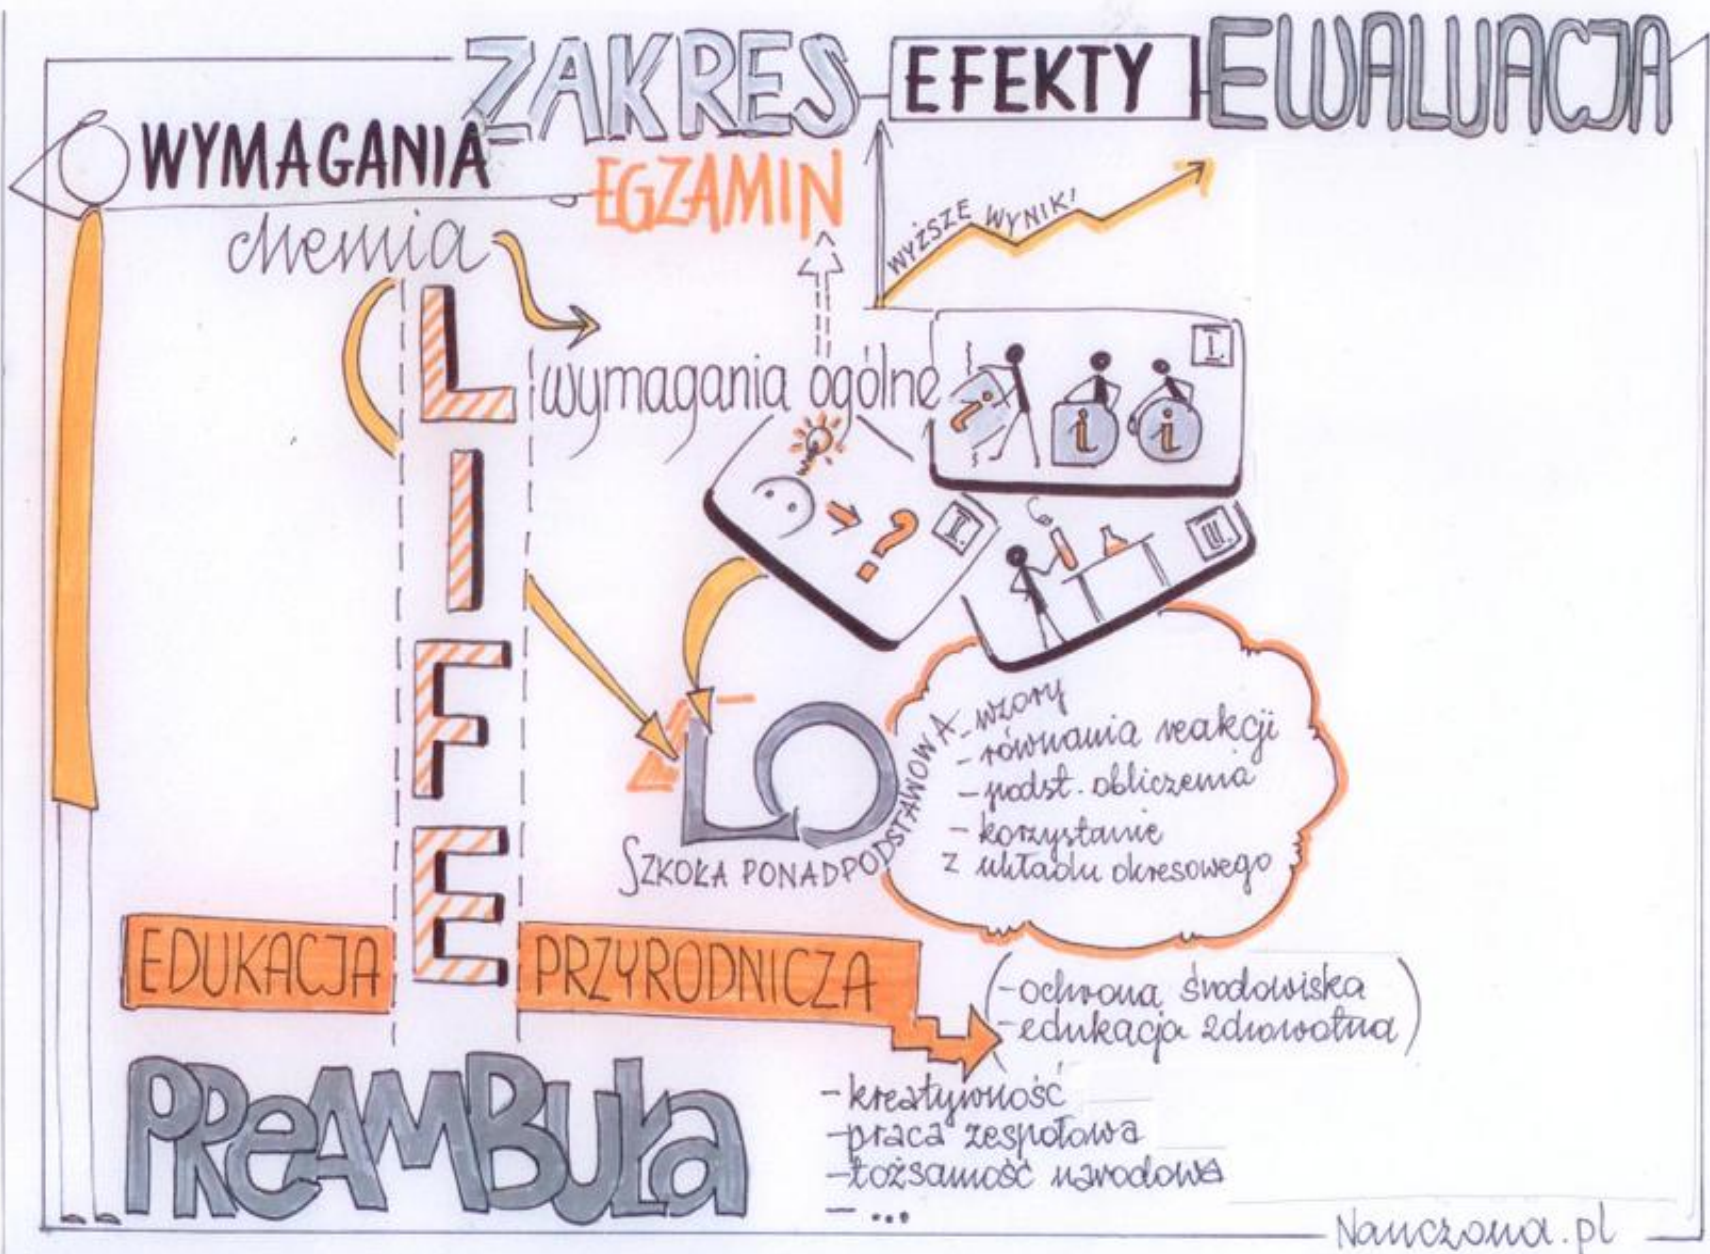 ZAKRES EFEKTY EWALUACJA
WYMAGANIA
EGZAMIN
chemia
WYŻSZE WYNIKI
LIFE
wymagania ogólne
I.
i i i
?
I.
III.
SZKOŁA PONADPODSTAWOWA
- wzory
- równania reakcji
- podst. obliczenia
- korzystanie
z układu okresowego
EDUKACJA PRZYRODNICZA
- ochrona środowiska
- edukacja zdrowotna
PREAMBUŁA
- kreatywność
- praca zespołowa
- tożsamość narodowa
- ...
Nauczona.pl